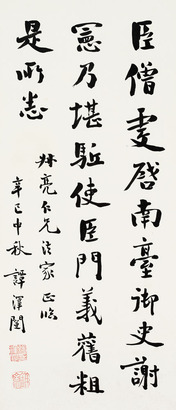 臣僧虔啓南臺御史謝
憲乃堪驅使臣門義舊粗
是所悉
叔亮仁兄法家正臨
辛巳中秋 譚澤闓